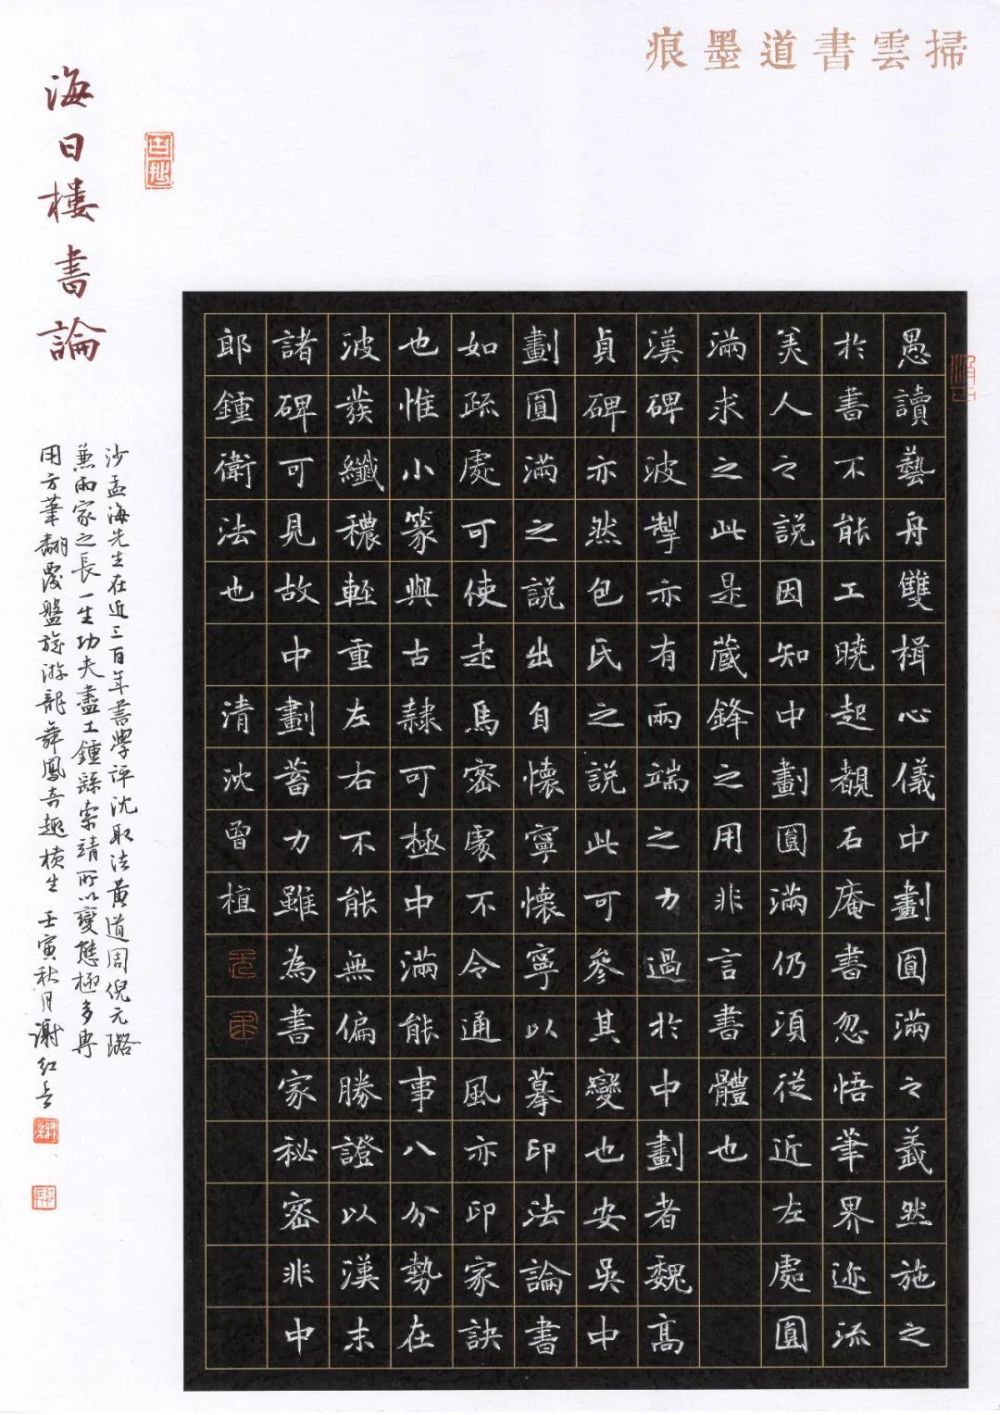 掃雲書道墨痕
愚讀藝舟雙楫心儀中劃圓滿之義然施之
於書不能工曉起覩石庵書忽悟筆界迹流
美人之說因知中劃圓滿仍須從近左處圓
滿求之此是藏鋒之用非言書體也
漢碑波掣亦有兩端之力過於中劃者魏高
貞碑亦然包氏之說此可參其變也安吳中
劃圓滿之說出自懷寧懷寧以摹印法論書
如疏處可使走馬密處不令通風亦印家訣
也惟小篆與古隸可極中滿能事八分勢在
波發纖穠輕重左右不能無偏勝證以漢末
諸碑可見故中劃蓄力雖為書家秘密非中
郎鍾衛法也 清沈曾植
海日樓書論
沙孟海先生在近三百年書學評沈取法黃道周倪元璐
兼兩家之長一生功夫盡工鍾繇索靖所以變態極多專
用方筆翻覆盤旋游龍舞鳳奇趣橫生 壬寅秋月謝紅